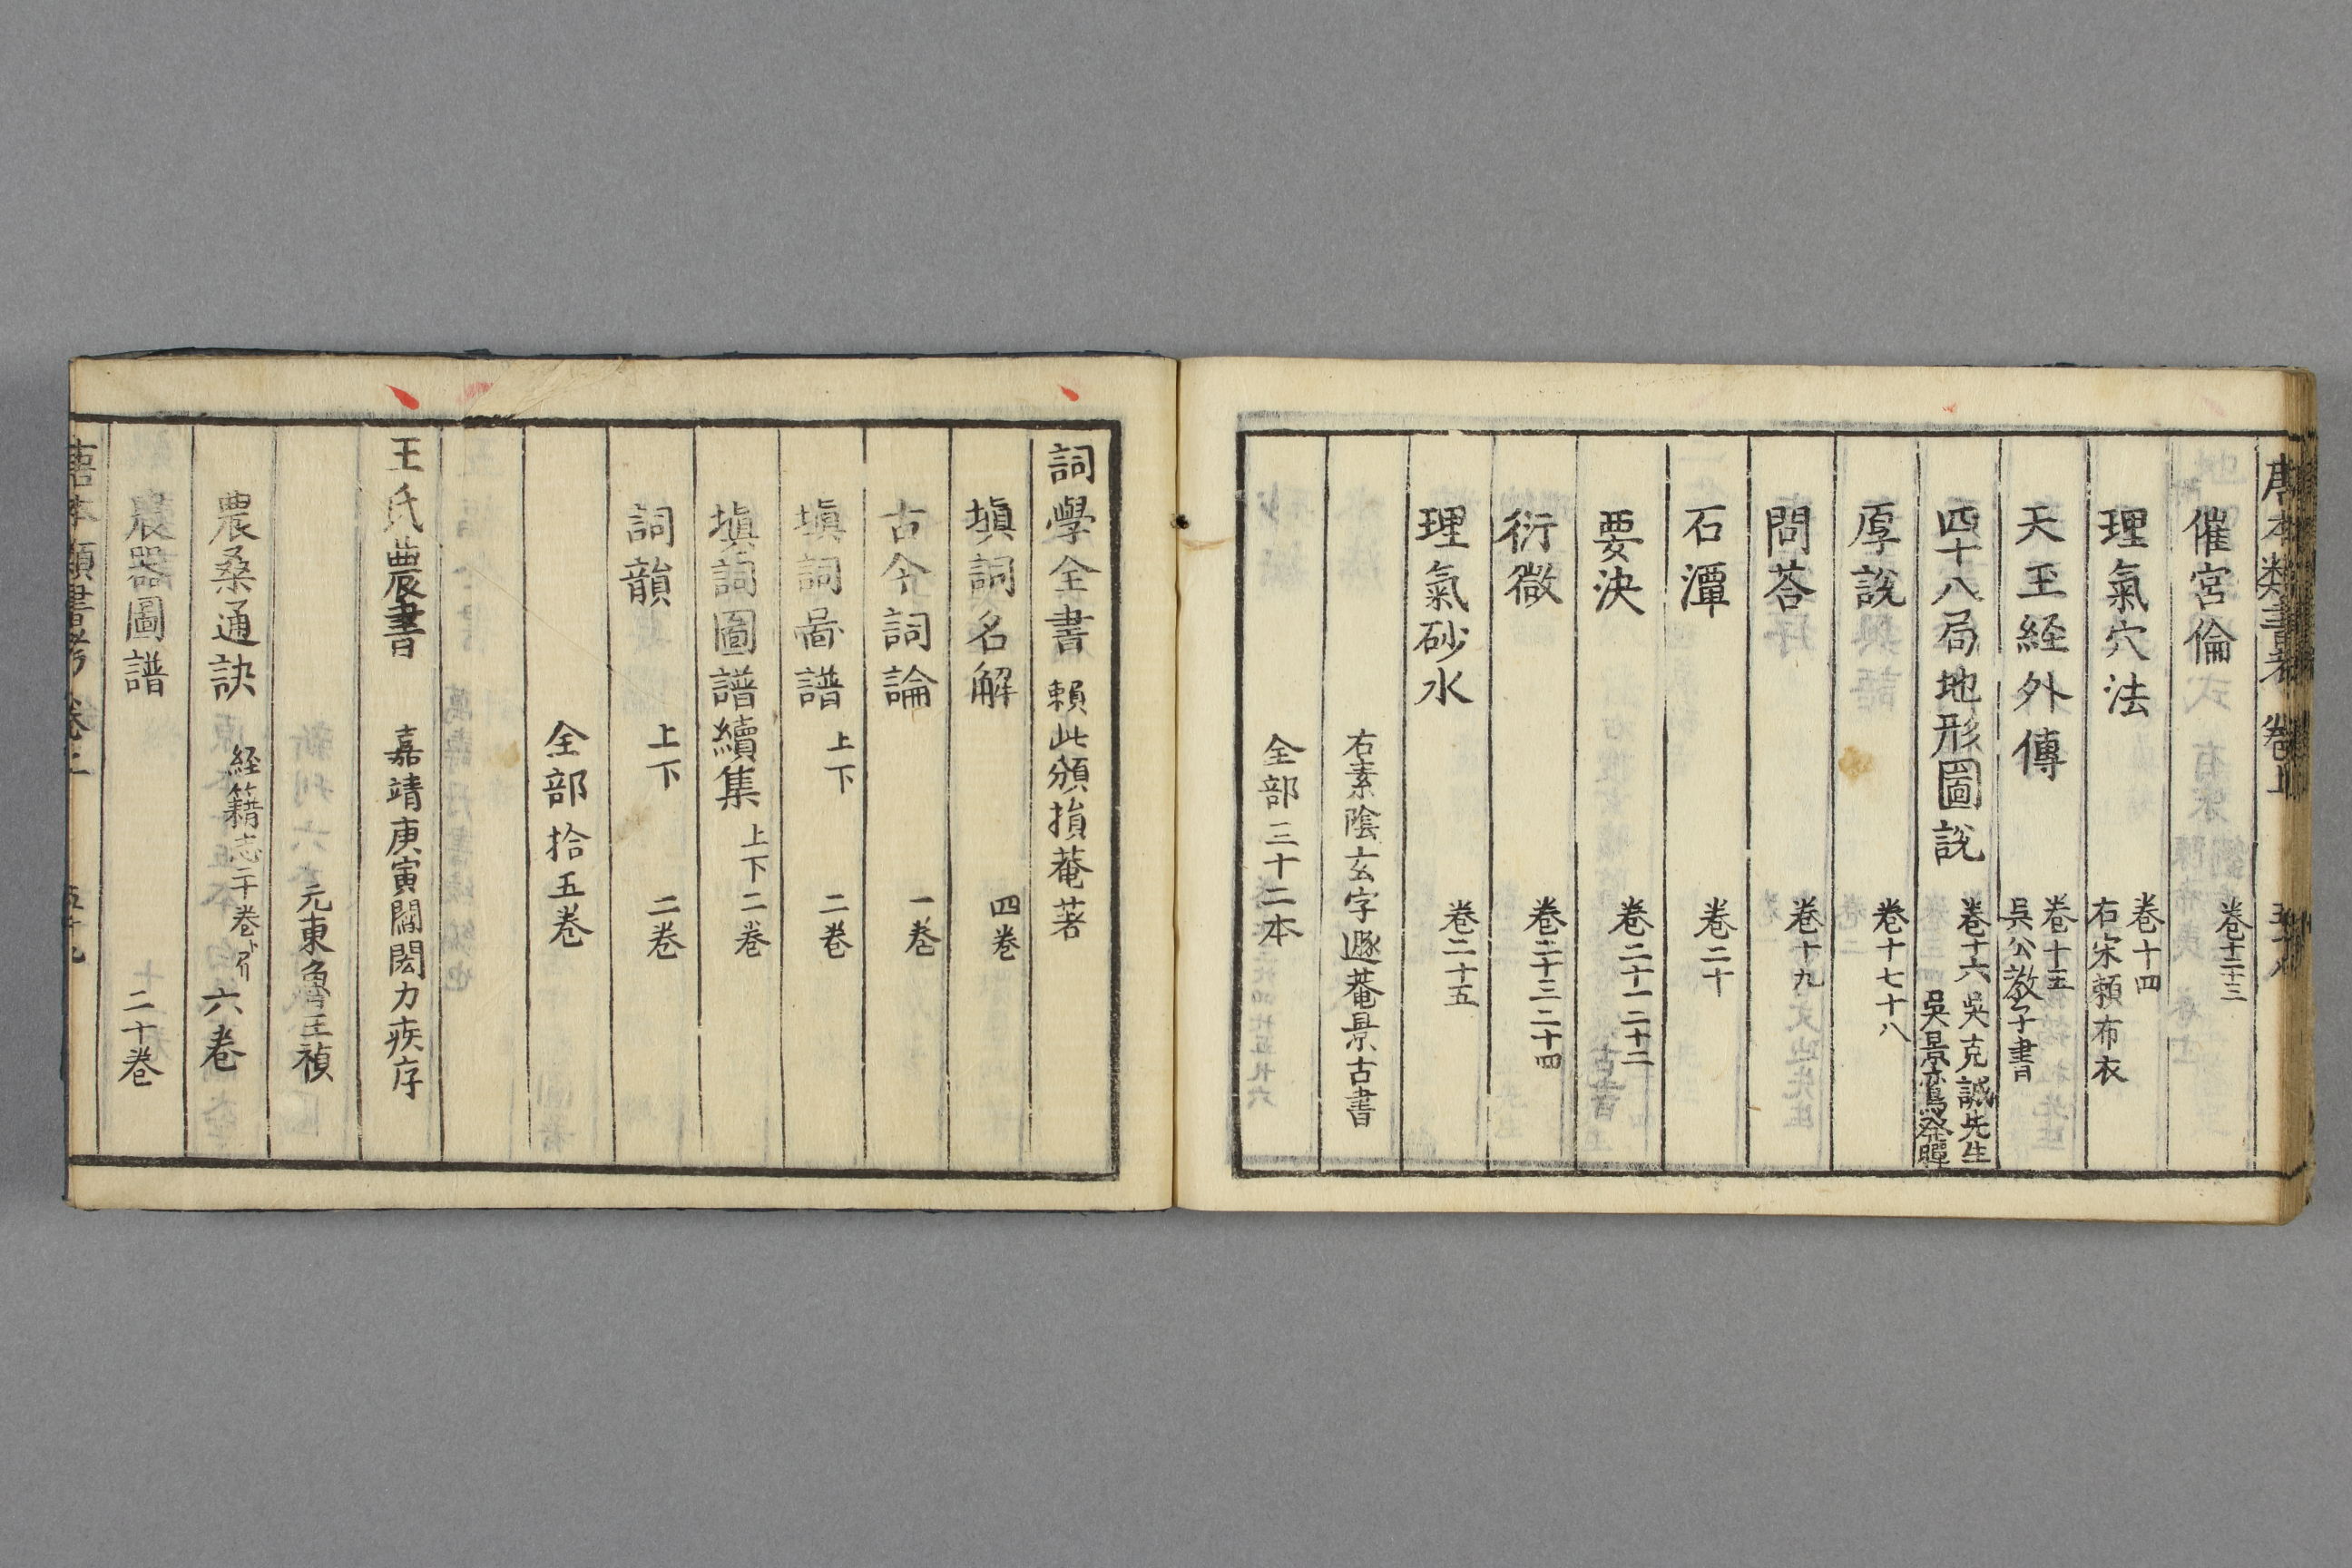 唐本類書考 卷上 五十八
催宮倫 卷十二十三
理氣穴法 卷十四
右宋賴布衣
天玉経外傳 卷十五
吳公教子書
四十八局地形圖說 卷十六 吳克誠先生
吳景鸞発暉
厚說 卷十七十八
問荅 卷十九
石潭 卷二十
要決 卷二十一二十二
衍微 卷二十三二十四
理氣砂水 卷二十五
右素陰玄字遯菴景古書
全部三十二本
詞學全書 賴此頽損菴著
塡詞名解 四卷
古今詞論 一卷
塡詞啚譜 上下 二卷
塡詞圖譜續集 上下二卷
詞韻 上下 二卷
全部拾五卷
王氏農書 嘉靖庚寅闗閎力疾序
元東魯王禎
農桑通訣 経籍志二十卷 六卷
農器圖譜 二十卷
唐本類書考 卷上 五十九